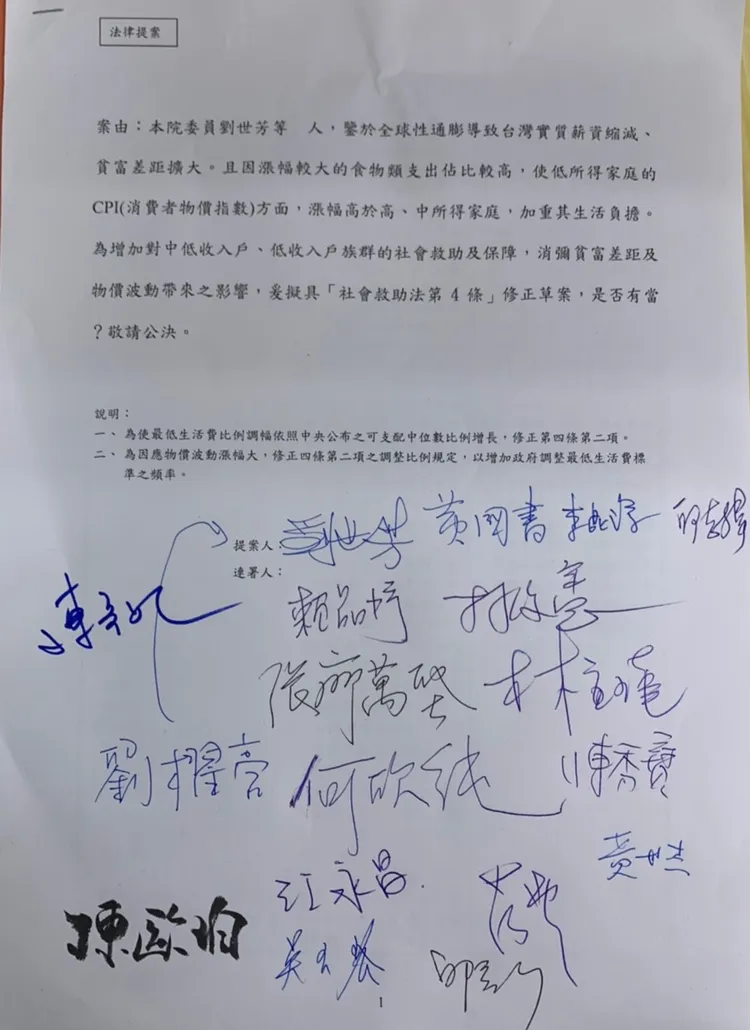 法律提案
案由：本院委員劉世芳等　人，鑒於全球性通膨導致台灣實質薪資縮減、
貧富差距擴大。且因漲幅較大的食物類支出佔比較高，使低所得家庭的
CPI(消費者物價指數)方面，漲幅高於高、中所得家庭，加重其生活負擔。
為增加對中低收入戶、低收入戶族群的社會救助及保障，消彌貧富差距及
物價波動帶來之影響，爰擬具「社會救助法第 4 條」修正草案，是否有當
？敬請公決。
說明：
一、 為使最低生活費比例調幅依照中央公布之可支配中位數比例增長，修正第四條第二項。
二、 為因應物價波動漲幅大，修正四條第二項之調整比例規定，以增加政府調整最低生活費標
準之頻率。
提案人：劉世芳 黃國書
連署人：
賴品妤
張廖萬堅
劉櫂豪 何欣純 陳秀寶
黃世杰
江永昌
陳歐珀
1